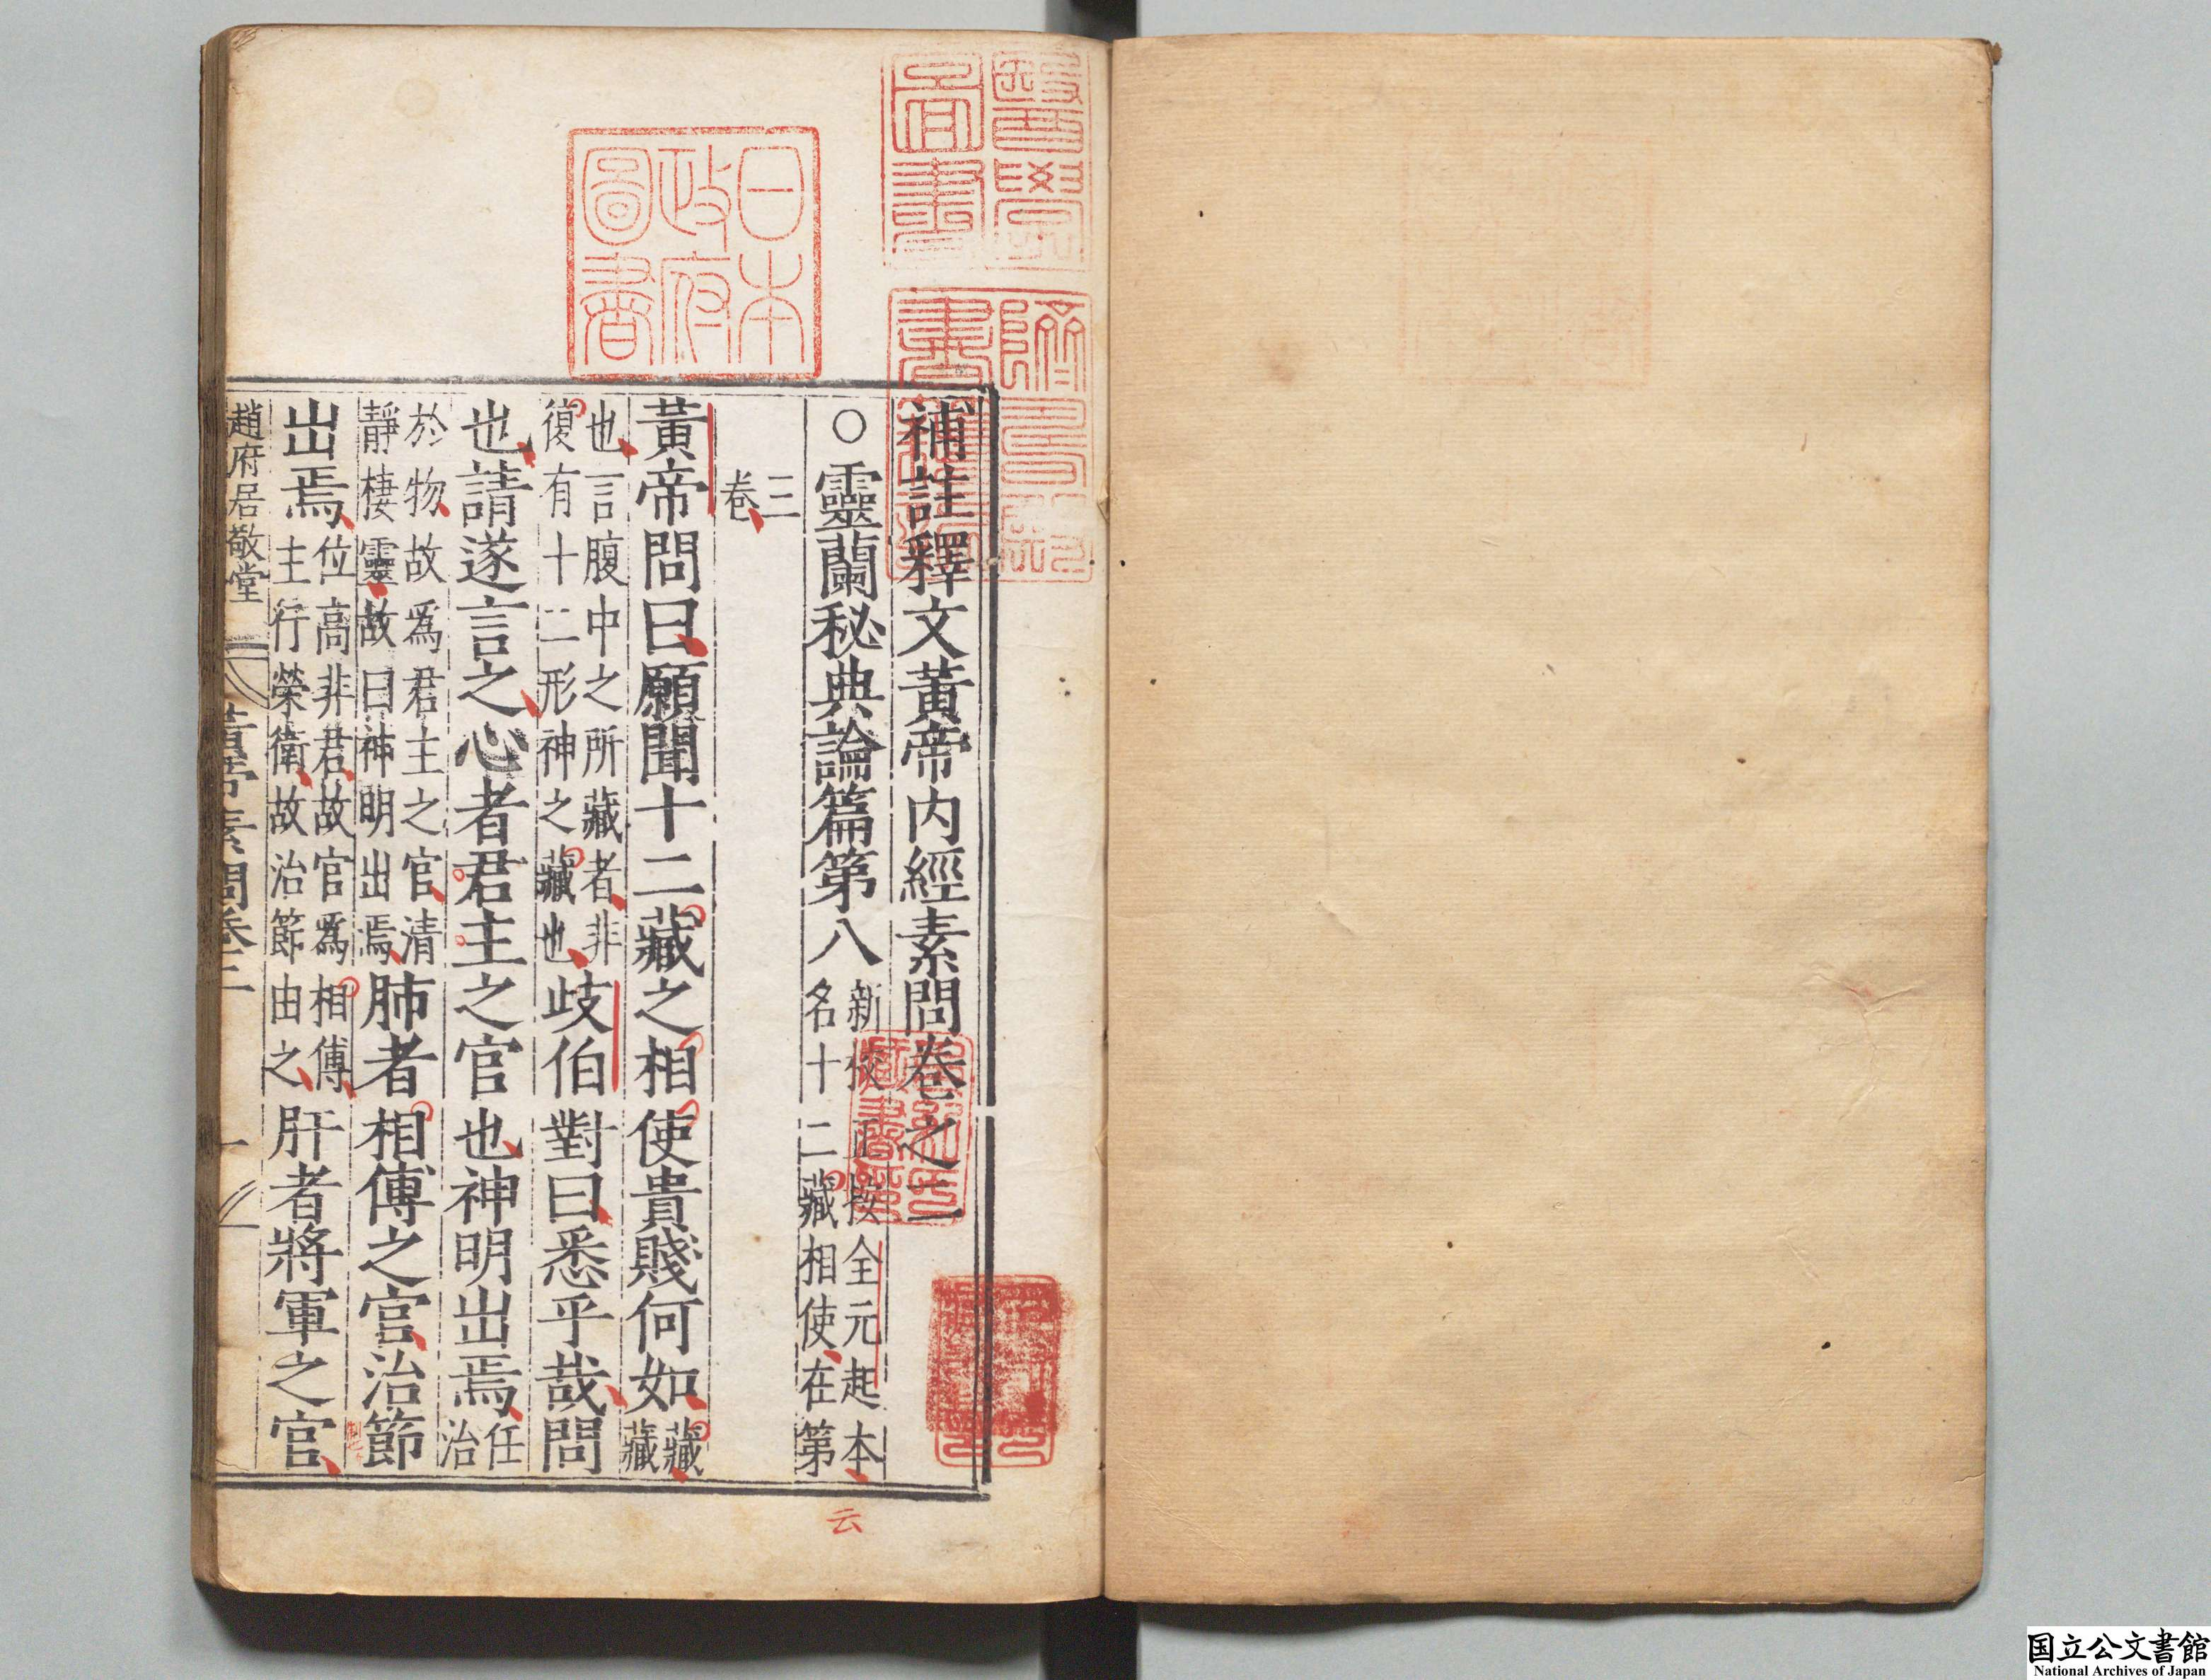 補註釋文黃帝內經素問卷之二
○靈蘭秘典論篇第八 新校正按全元起本
名十二藏相使在第
三
卷
黃帝問曰願聞十二藏之相使貴賤何如 藏
藏
也言腹中之所藏者非
復有十二形神之藏也 歧伯對曰悉乎哉問
也請遂言之心者君主之官也神明出焉 任
治
於物故爲君主之官清
靜棲靈故曰神明出焉 肺者相傅之官治節
出焉 位高非君故官爲相傅
主行榮衛故治節由之 肝者將軍之官
趙府居敬堂
黃帝素問卷二
一
日本
政府
圖書
云
国立公文書館
National Archives of Japan